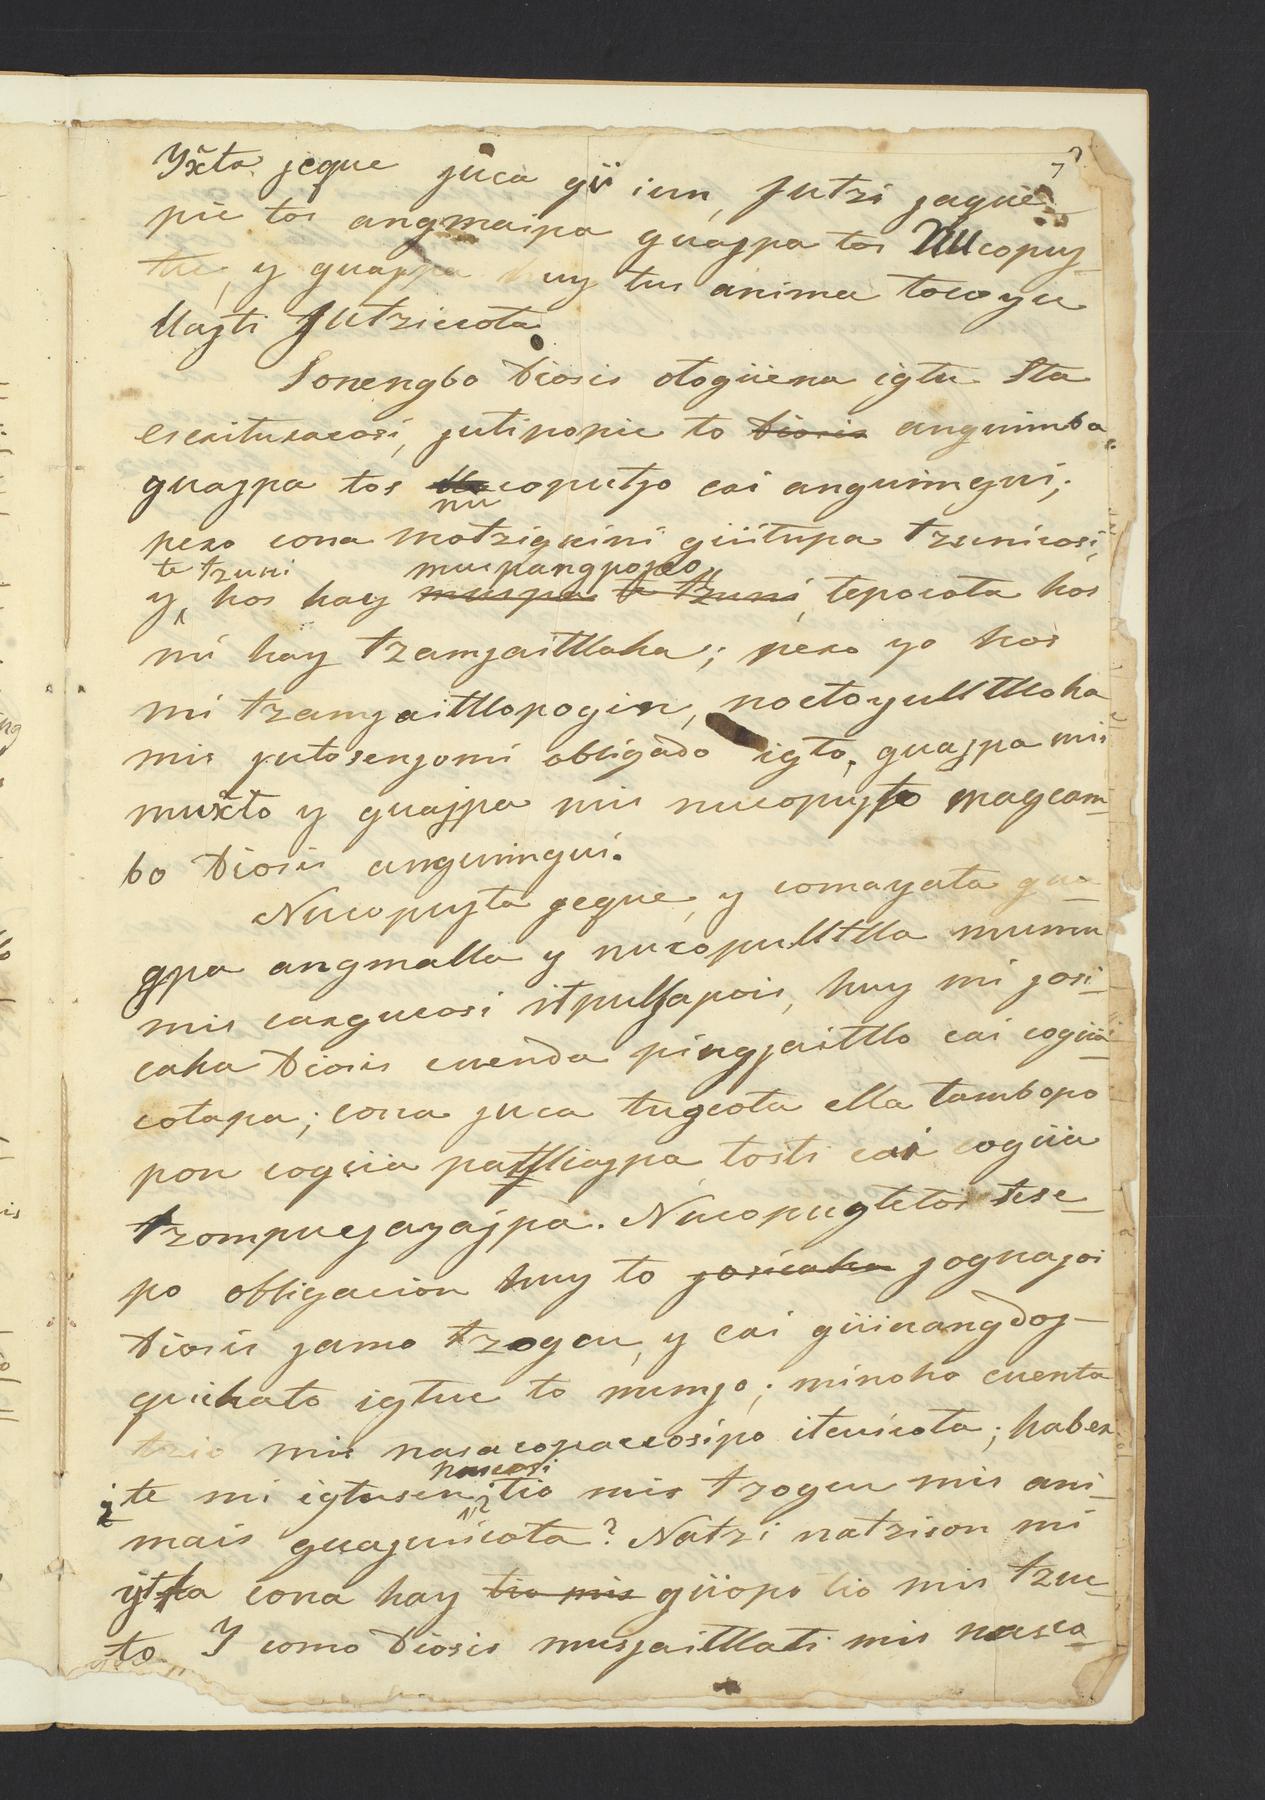 7
Yx̃ta jeque juca güiun, Jutzi jaque
pie tos angmaipa guajpa tos Nucopuj-
tu, y guajpa huy tus anima tocoyu
llajti Jutziecota
Sonengbo Diosis otogüena igtu Sta
escrituracosi, jutipopie to Diosis anguimba
guajpa tos nucoputjo cai anguimgui;
nu
pero cona motziguini güitupa tzunicosi,
te tzuni muspangpopso
y hos hay muspa te tzuni, tepocota hos
mi hay tzamjaitllaha; pero yo hos
mi tzamjaitllopogin, noctoyulltlloha
mis jutosenjomi obligado igto, guajpa mis
mux̃to y guajpa mis nucopujto magcam-
bo Diosis anguimgui.
Nucopujta jeque, y comayata gua-
gpa angmalla y nucopulltlla mumu
mis cargucosi itpulljapois, huy mi josi-
caha Diosis cuenda pingjaitllo cai cogüa-
cotapa; cona juca tugcota ella tambopo
pon cogüia patlliajpa tosti cai cogüia
tzompuejayajpa. Nucopugtetos tese-
po obligacion huy to josicaha jognajoi
Diosis jamo tzogou, y cai güiuangdoj-
guihato igtue to numjo; minoho cuenta
tzio mis nasacopaccosipo itcuicota; haber
nascosi
¿te mi igtusen, ¿tio mis tzogou mis ani-
mais guajuicota? Natzi natzison mi
ijtta cona hay tio mis güopo tio mis tzuc-
to. Y como Diosis musjaitllati mis nasca-